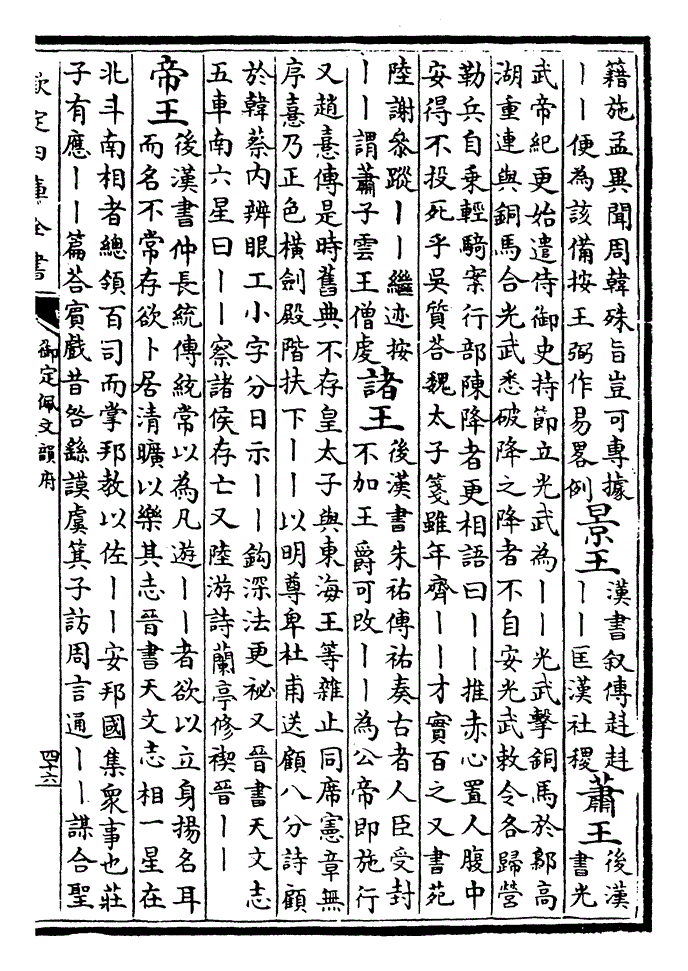 籍施孟異聞周韓殊旨豈可專據
丨丨便為該備按王弼作易畧例
景王
漢書叙傳赳赳
丨丨匡漢社稷
蕭王
後漢
書光
武帝紀更始遣侍御史持節立光武為丨丨光武擊銅馬於鄡高
湖重連與銅馬合光武悉破降之降者不自安光武敕令各歸營
勒兵自乘輕騎案行部陳降者更相語曰丨丨推赤心置人腹中
安得不投死乎吳質荅魏太子箋雖年齊丨丨才實百之又書苑
陸謝參蹤丨丨繼迹按
丨丨謂蕭子雲王僧虔
諸王
後漢書朱祐傳祐奏古者人臣受封
不加王爵可改丨丨為公帝即施行
又趙憙傳是時舊典不存皇太子與東海王等雜止同席憲章無
序憙乃正色橫劍殿階扶下丨丨以明尊卑杜甫送顧八分詩顧
於韓蔡内辨眼工小字分日示丨丨鈎深法更祕又晉書天文志
五車南六星曰丨丨察諸侯存亡又陸游詩蘭亭修禊晉丨丨
帝王
後漢書仲長統傳統常以為凡遊丨丨者欲以立身揚名耳
而名不常存欲卜居清曠以樂其志晉書天文志相一星在
北斗南相者總領百司而掌邦教以佐丨丨安邦國集衆事也莊
子有應丨丨篇荅賓戲昔咎繇謨虞箕子訪周言通丨丨謀合聖
欽定四庫全書
御定佩文韻府
四十六